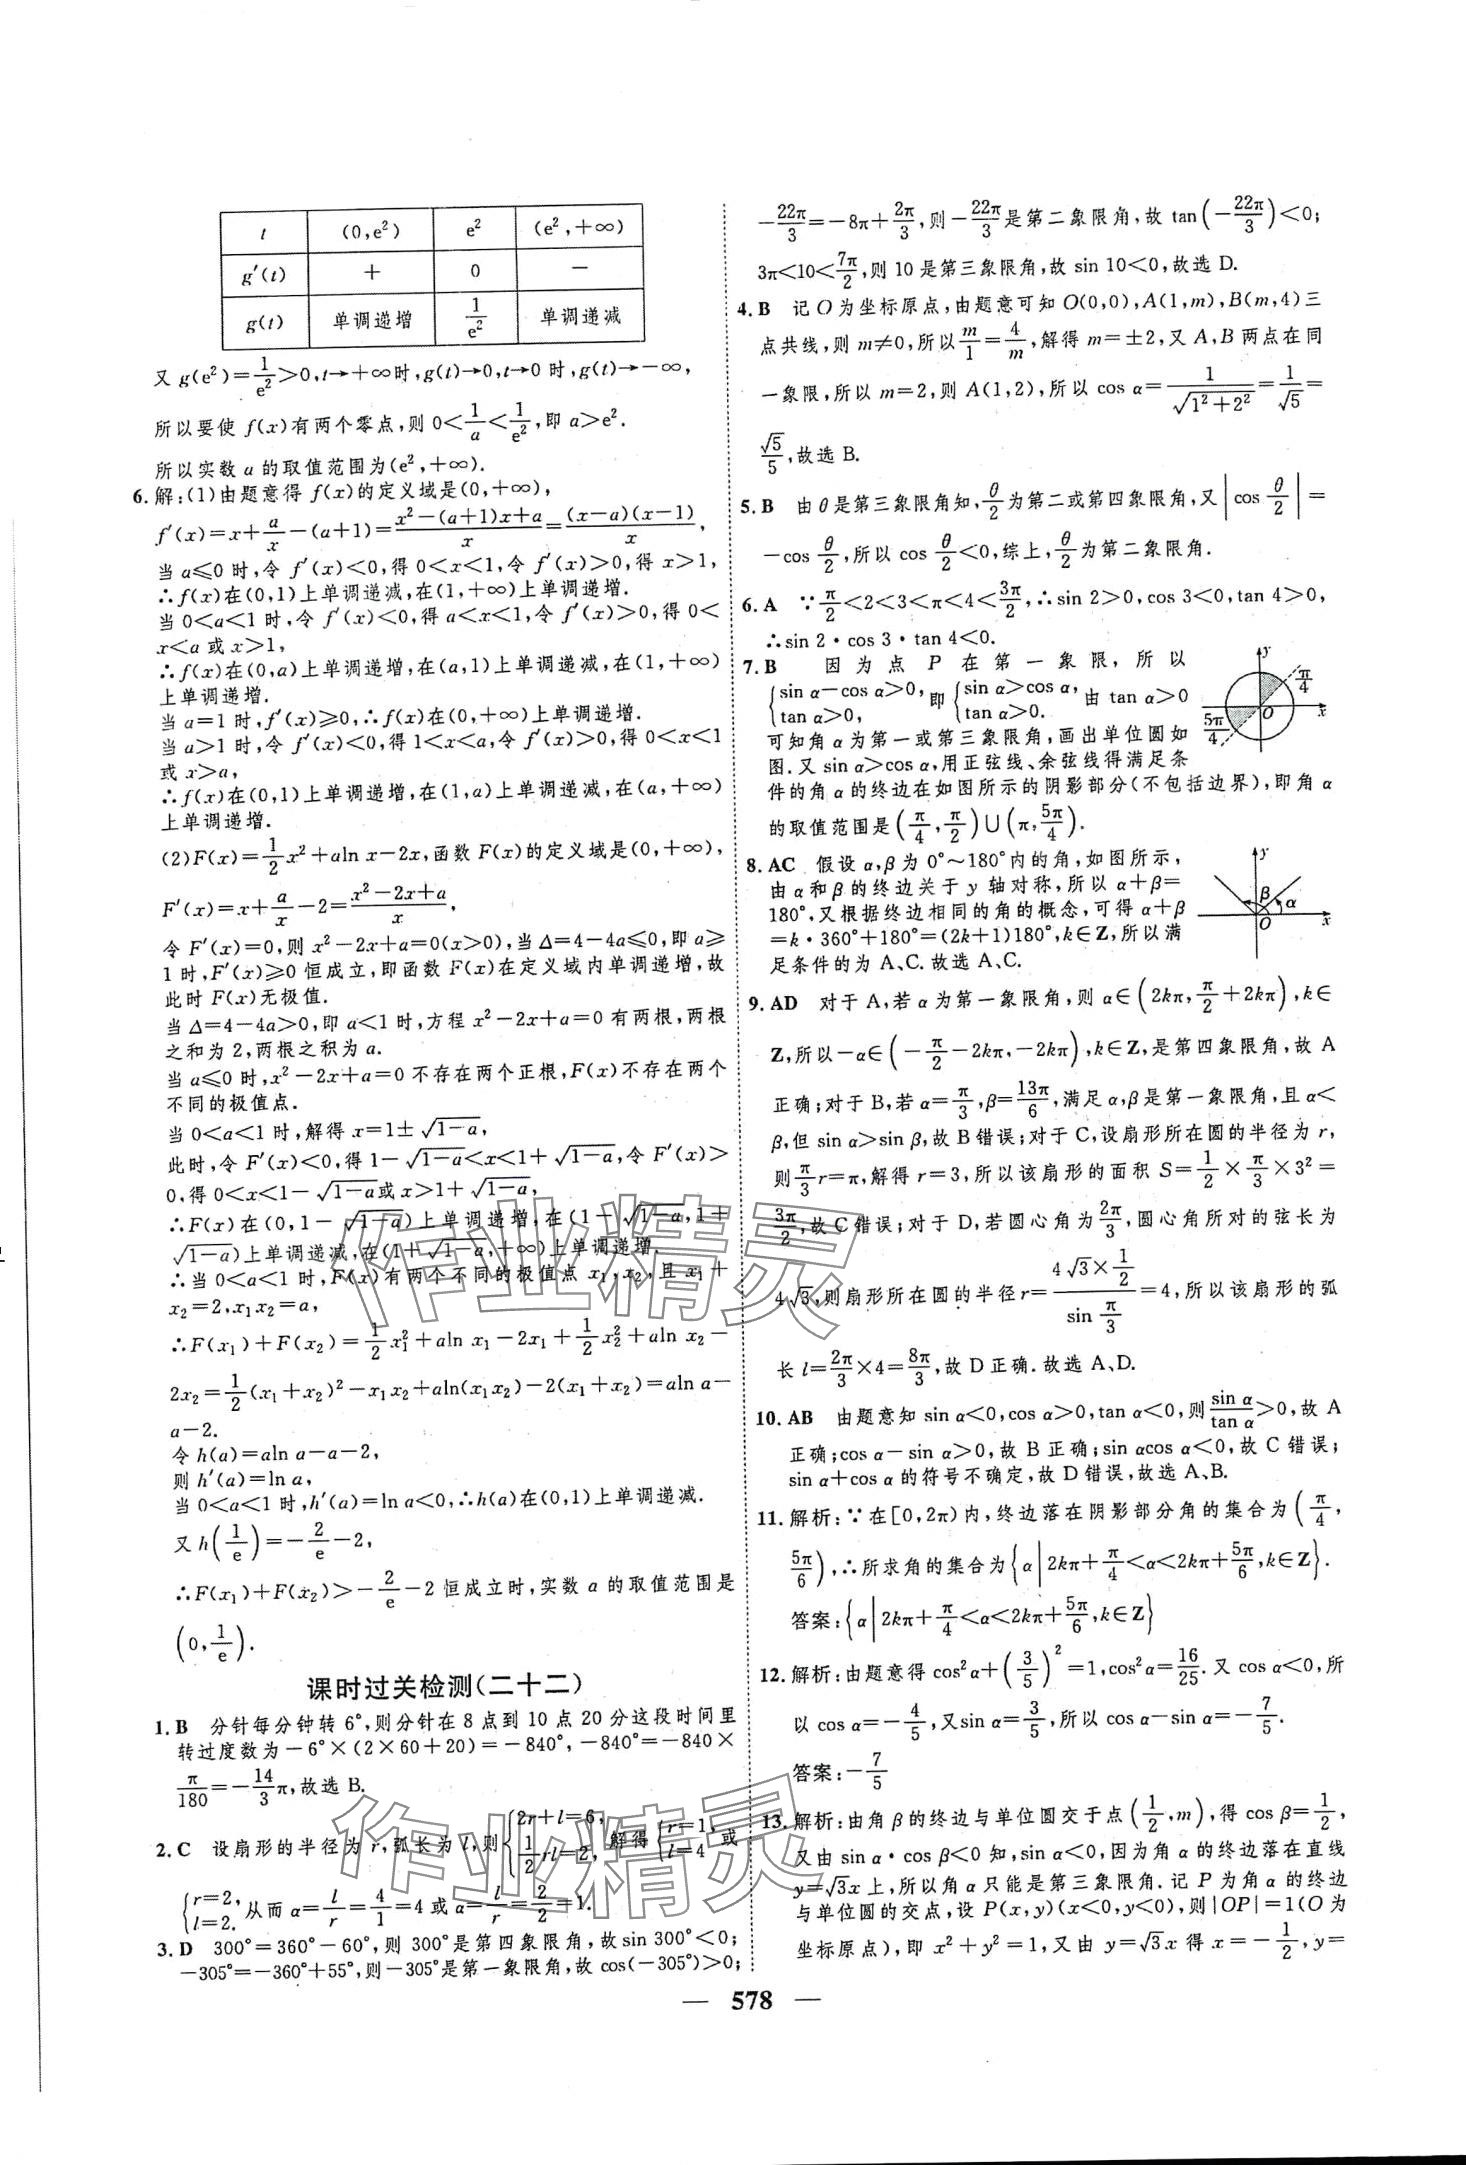 t (0,e²) e² (e²,+∞)
g′(t) + 0 −
g(t) 单调递增 1/e² 单调递减
又 g(e²)=1/e²>0,t→+∞时,g(t)→0,t→0 时,g(t)→−∞,
所以要使 f(x)有两个零点,则 0<1/a<1/e²,即 a>e².
所以实数 a 的取值范围为(e²,+∞).
6.解:(1)由题意得 f(x)的定义域是(0,+∞),
f′(x)=x+a/x−(a+1)=(x²−(a+1)x+a)/x=((x−a)(x−1))/x,
当 a⩽0 时,令 f′(x)<0,得 0<x<1,令 f′(x)>0,得 x>1,
∴f(x)在(0,1)上单调递减,在(1,+∞)上单调递增.
当 0<a<1 时,令 f′(x)<0,得 a<x<1,令 f′(x)>0,得 0<
x<a 或 x>1,
∴f(x)在(0,a)上单调递增,在(a,1)上单调递减,在(1,+∞)
上单调递增.
当 a=1 时,f′(x)⩾0,∴f(x)在(0,+∞)上单调递增.
当 a>1 时,令 f′(x)<0,得 1<x<a,令 f′(x)>0,得 0<x<1
或 x>a,
∴f(x)在(0,1)上单调递增,在(1,a)上单调递减,在(a,+∞)
上单调递增.
(2)F(x)=1/2x²+aln x−2x,函数 F(x)的定义域是(0,+∞),
F′(x)=x+a/x−2=(x²−2x+a)/x,
令 F′(x)=0,则 x²−2x+a=0(x>0),当 Δ=4−4a⩽0,即 a⩾
1 时,F′(x)⩾0 恒成立,即函数 F(x)在定义域内单调递增,故
此时 F(x)无极值.
当 Δ=4−4a>0,即 a<1 时,方程 x²−2x+a=0 有两根,两根
之和为 2,两根之积为 a.
当 a⩽0 时,x²−2x+a=0 不存在两个正根,F(x)不存在两个
不同的极值点.
当 0<a<1 时,解得 x=1±√(1−a),
此时,令 F′(x)<0,得 1−√(1−a)<x<1+√(1−a),令 F′(x)>
0,得 0<x<1−√(1−a)或 x>1+√(1−a),
∴F(x)在(0,1−√(1−a))上单调递增,在(1−√(1−a),1+
√(1−a))上单调递减,在(1+√(1−a),+∞)上单调递增.
∴当 0<a<1 时,F(x)有两个不同的极值点 x₁,x₂,且 x₁+
x₂=2,x₁x₂=a,
∴F(x₁)+F(x₂)=1/2x₁²+aln x₁−2x₁+1/2x₂²+aln x₂−
2x₂=1/2(x₁+x₂)²−x₁x₂+aln(x₁x₂)−2(x₁+x₂)=aln a−
a−2.
令 h(a)=aln a−a−2,
则 h′(a)=ln a,
当 0<a<1 时,h′(a)=ln a<0,∴h(a)在(0,1)上单调递减.
又 h(1/e)=−2/e−2,
∴F(x₁)+F(x₂)>−2/e−2 恒成立时,实数 a 的取值范围是
(0,1/e).
课时过关检测(二十二)
1.B 分针每分钟转 6°,则分针在 8 点到 10 点 20 分这段时间里
转过度数为−6°×(2×60+20)=−840°,−840°=−840×
π/180=−14/3π,故选 B.
2.C 设扇形的半径为 r,弧长为 l,则{2r+l=6, 1/2rl=2, 解得{r=1, l=4 或
{r=2, l=2. 从而 α=l/r=4/1=4 或 α=l/r=2/2=1.
3.D 300°=360°−60°,则 300°是第四象限角,故 sin 300°<0;
−305°=−360°+55°,则−305°是第一象限角,故 cos(−305°)>0;
−22π/3=−8π+2π/3,则−22π/3是第二象限角,故 tan(−22π/3)<0;
3π<10<7π/2,则 10 是第三象限角,故 sin 10<0,故选 D.
4.B 记 O 为坐标原点,由题意可知 O(0,0),A(1,m),B(m,4)三
点共线,则 m≠0,所以m/1=4/m,解得 m=±2,又 A,B 两点在同
一象限,所以 m=2,则 A(1,2),所以 cos α=1/√(1²+2²)=1/√5=
√5/5,故选 B.
5.B 由 θ 是第三象限角知,θ/2为第二或第四象限角,又|cos θ/2|=
−cos θ/2,所以 cos θ/2<0,综上,θ/2为第二象限角.
6.A ∵π/2<2<3<π<4<3π/2,∴sin 2>0,cos 3<0,tan 4>0,
∴sin 2·cos 3·tan 4<0.
7.B 因为点 P 在第一象限,所以
{sin α−cos α>0, tan α>0, 即{sin α>cos α, tan α>0. 由 tan α>0
可知角 α 为第一或第三象限角,画出单位圆如
图.又 sin α>cos α,用正弦线、余弦线得满足条
件的角 α 的终边在如图所示的阴影部分(不包括边界),即角 α
的取值范围是(π/4,π/2)∪(π,5π/4).
y π/4 5π/4 O x
8.AC 假设 α,β 为 0°~180°内的角,如图所示,
由 α 和 β 的终边关于 y 轴对称,所以 α+β=
180°,又根据终边相同的角的概念,可得 α+β
=k·360°+180°=(2k+1)180°,k∈Z,所以满
足条件的为 A、C.故选 A、C.
y β α O x
9.AD 对于 A,若 α 为第一象限角,则 α∈(2kπ,π/2+2kπ),k∈
Z,所以−α∈(−π/2−2kπ,−2kπ),k∈Z,是第四象限角,故 A
正确;对于 B,若 α=π/3,β=13π/6,满足 α,β 是第一象限角,且 α<
β,但 sin α>sin β,故 B 错误;对于 C,设扇形所在圆的半径为 r,
则π/3r=π,解得 r=3,所以该扇形的面积 S=1/2×π/3×3²=
3π/2,故 C 错误;对于 D,若圆心角为2π/3,圆心角所对的弦长为
4√3,则扇形所在圆的半径 r=(4√3×1/2)/(sin π/3)=4,所以该扇形的弧
长 l=2π/3×4=8π/3,故 D 正确.故选 A、D.
10.AB 由题意知 sin α<0,cos α>0,tan α<0,则sin α/tan α>0,故 A
正确;cos α−sin α>0,故 B 正确;sin αcos α<0,故 C 错误;
sin α+cos α 的符号不确定,故 D 错误,故选 A、B.
11.解析:∵在[0,2π)内,终边落在阴影部分角的集合为(π/4,
5π/6),∴所求角的集合为{α|2kπ+π/4<α<2kπ+5π/6,k∈Z}.
答案:{α|2kπ+π/4<α<2kπ+5π/6,k∈Z}
12.解析:由题意得 cos²α+(3/5)²=1,cos²α=16/25.又 cos α<0,所
以 cos α=−4/5,又sin α=3/5,所以 cos α−sin α=−7/5.
答案:−7/5
13.解析:由角 β 的终边与单位圆交于点(1/2,m),得 cos β=1/2,
又由 sin α·cos β<0 知,sin α<0,因为角 α 的终边落在直线
y=√3x 上,所以角 α 只能是第三象限角.记 P 为角 α 的终边
与单位圆的交点,设 P(x,y)(x<0,y<0),则|OP|=1(O 为
坐标原点),即 x²+y²=1,又由 y=√3x 得 x=−1/2,y=
— 578 —
作业精灵
作业精灵